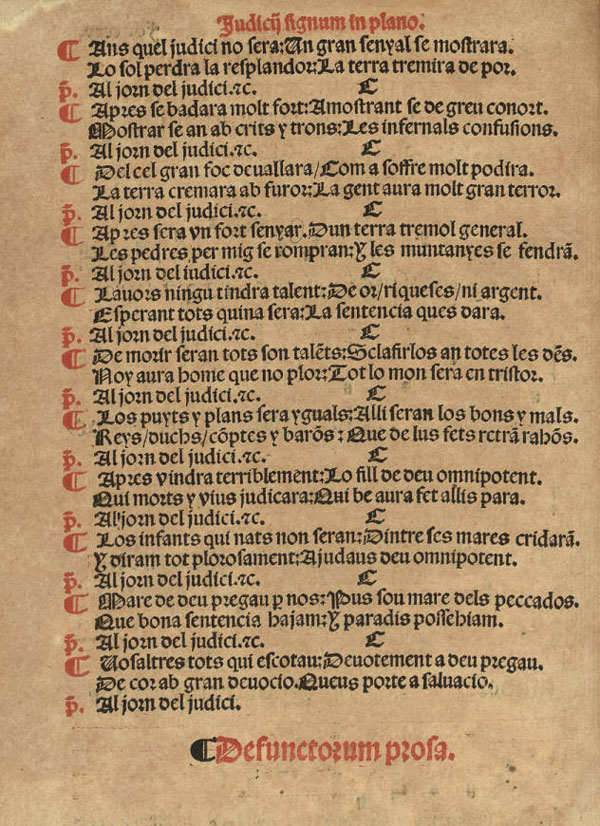 Judicij signum in plano.
¶ Ans quel judici no sera: Un gran senyal se mostrara.
Lo sol perdra la resplandor: La terra tremira de por.
p̃. Al jorn del judici. ⁊c. C
¶ Apres se badara molt fort: Amostrant se de greu conort.
Mostrar se an ab crits y trons: Les infernals confusions.
p̃. Al jorn del judici. ⁊c. C
¶ Del cel gran foc deuallara/ Com a soffre molt podira.
La terra cremara ab furor: La gent aura molt gran terror.
p̃. Al jorn del judici. ⁊c. C
¶ Apres sera vn fort senyar. Dun terra tremol general.
Les pedres per mig se rompran: Y les muntanyes se fendrã.
p̃. Al jorn del iudici. ⁊c. C
¶ Lauors ningu tindra talent: De or/ riqueses/ ni argent.
Esperant tots quina sera: La sentencia ques dara.
p̃. Al jorn del judici. ⁊c. C
¶ De morir seran tots son talẽts: Sclafirlos an totes les dẽs.
Noy aura home que no plor: Tot lo mon sera en tristor.
p̃. Al jorn del judici. ⁊c. C
¶ Los puyts y plans sera yguals: Alli seran los bons y mals.
Reys/ duchs/ cõptes y barõs: Que de lus fets retrã rahõs.
p̃. Al jorn del judici. ⁊c. C
¶ Apres vindra terriblement: Lo fill de deu omnipotent.
Qui morts y vius judicara: Qui be aura fet allis para.
p̃. Al jorn del judici. ⁊c. C
¶ Los infants qui nats non seran: Dintre ses mares cridarã.
Y diram tot plorosament: Ajudaus deu omnipotent.
p̃. Al jorn del judici. ⁊c. C
¶ Mare de deu pregau ꝑ nos: Pus sou mare dels peccados.
Que bona sentencia hajam: Y paradis possehiam.
p̃. Al jorn del judici. ⁊c. C
¶ Uosaltres tots qui escotau: Deuotement a deu pregau.
De cor ab gran deuocio. Queus porte a saluacio.
p̃. Al jorn del judici.
¶ Defunctorum prosa.